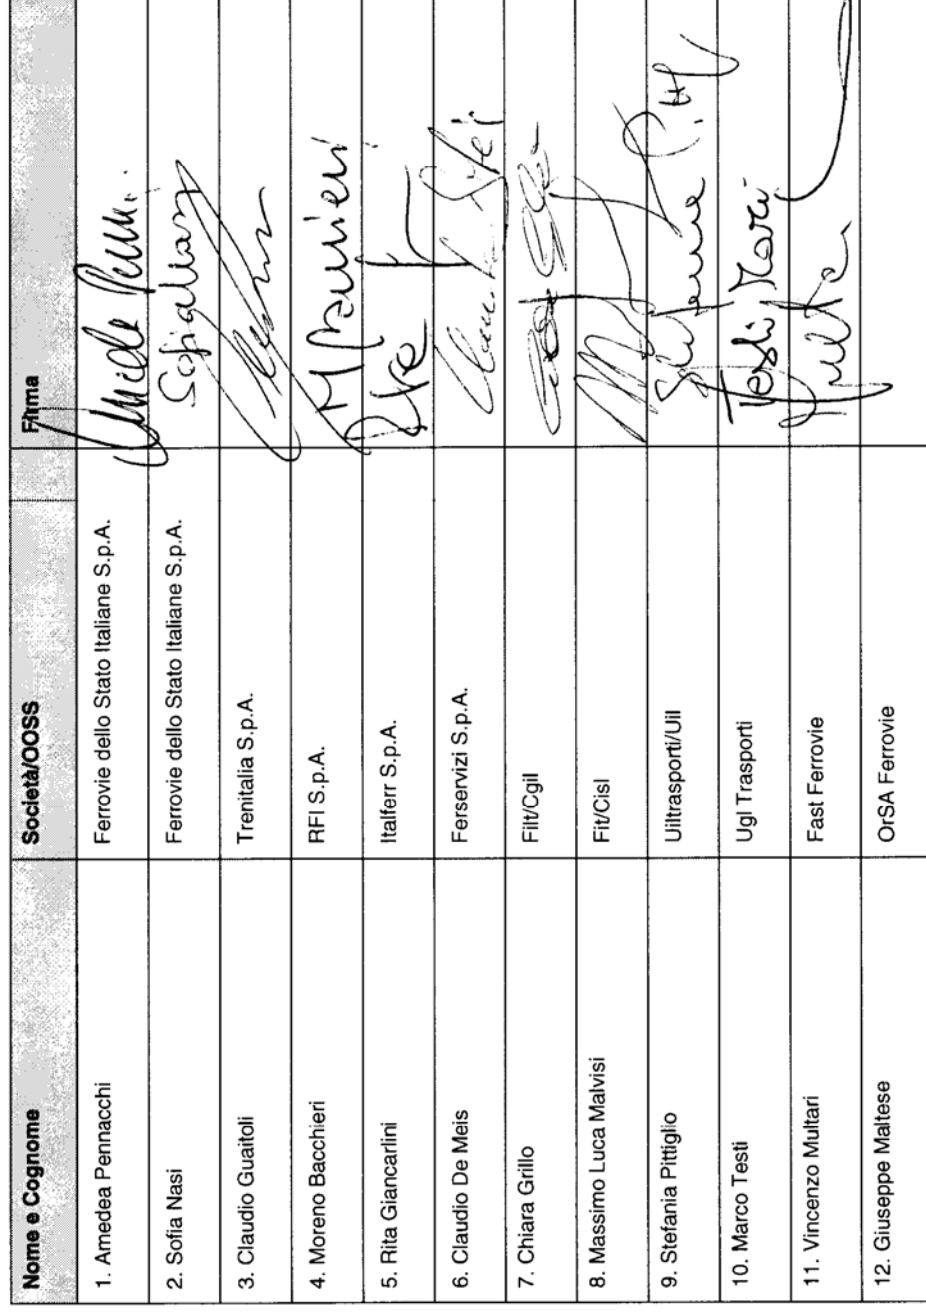 Nome e Cognome Società/OOSS Firma
1. Amedea Pennacchi Ferrovie dello Stato Italiane S.p.A.
2. Sofia Nasi Ferrovie dello Stato Italiane S.p.A.
3. Claudio Guaitoli Trenitalia S.p.A.
4. Moreno Bacchieri RFI S.p.A.
5. Rita Giancarlini Italferr S.p.A.
6. Claudio De Meis Ferservizi S.p.A.
7. Chiara Grillo Filt/Cgil
8. Massimo Luca Malvisi Fit/Cisl
9. Stefania Pittiglio Uiltrasporti/Uil
10. Marco Testi Ugl Trasporti Testi
11. Vincenzo Multari Fast Ferrovie
12. Giuseppe Maltese OrSA Ferrovie